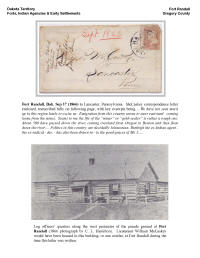 Dakota Territory
Forts, Indian Agencies & Early Settlements
Fort Randall
Gregory County
Sept 1864
Lancaster
Penna
Fort Randall, Dak. Sep 17 (1864) to Lancaster, Pennsylvania. McCaskey correspondence letter
enclosed, transcribed fully on following page, with key excerpts being… We have not seen snow
up in this region lately to excite us. Emigration from this country seems to
home from the mines. Seems to me the life of the "miner" or "gold-seeker" is rather a rough one.
About 500 have passed down the river, coming overland from Oregon to Benton and then from
down the river… Politics in this country are decidedly Johnsonian. Burleigh the ex Indian agent -
the ex radical - &c. - has also bowed to the good graces of Mr J…
Log officers' quarters along the west perimeter of the parade ground at Fort
Randall (1864 photograph by C. L. Hamilton). Lieutenant William McCaskey
would have been housed in this building, or one similar, at Fort Randall during the
time this letter was written.